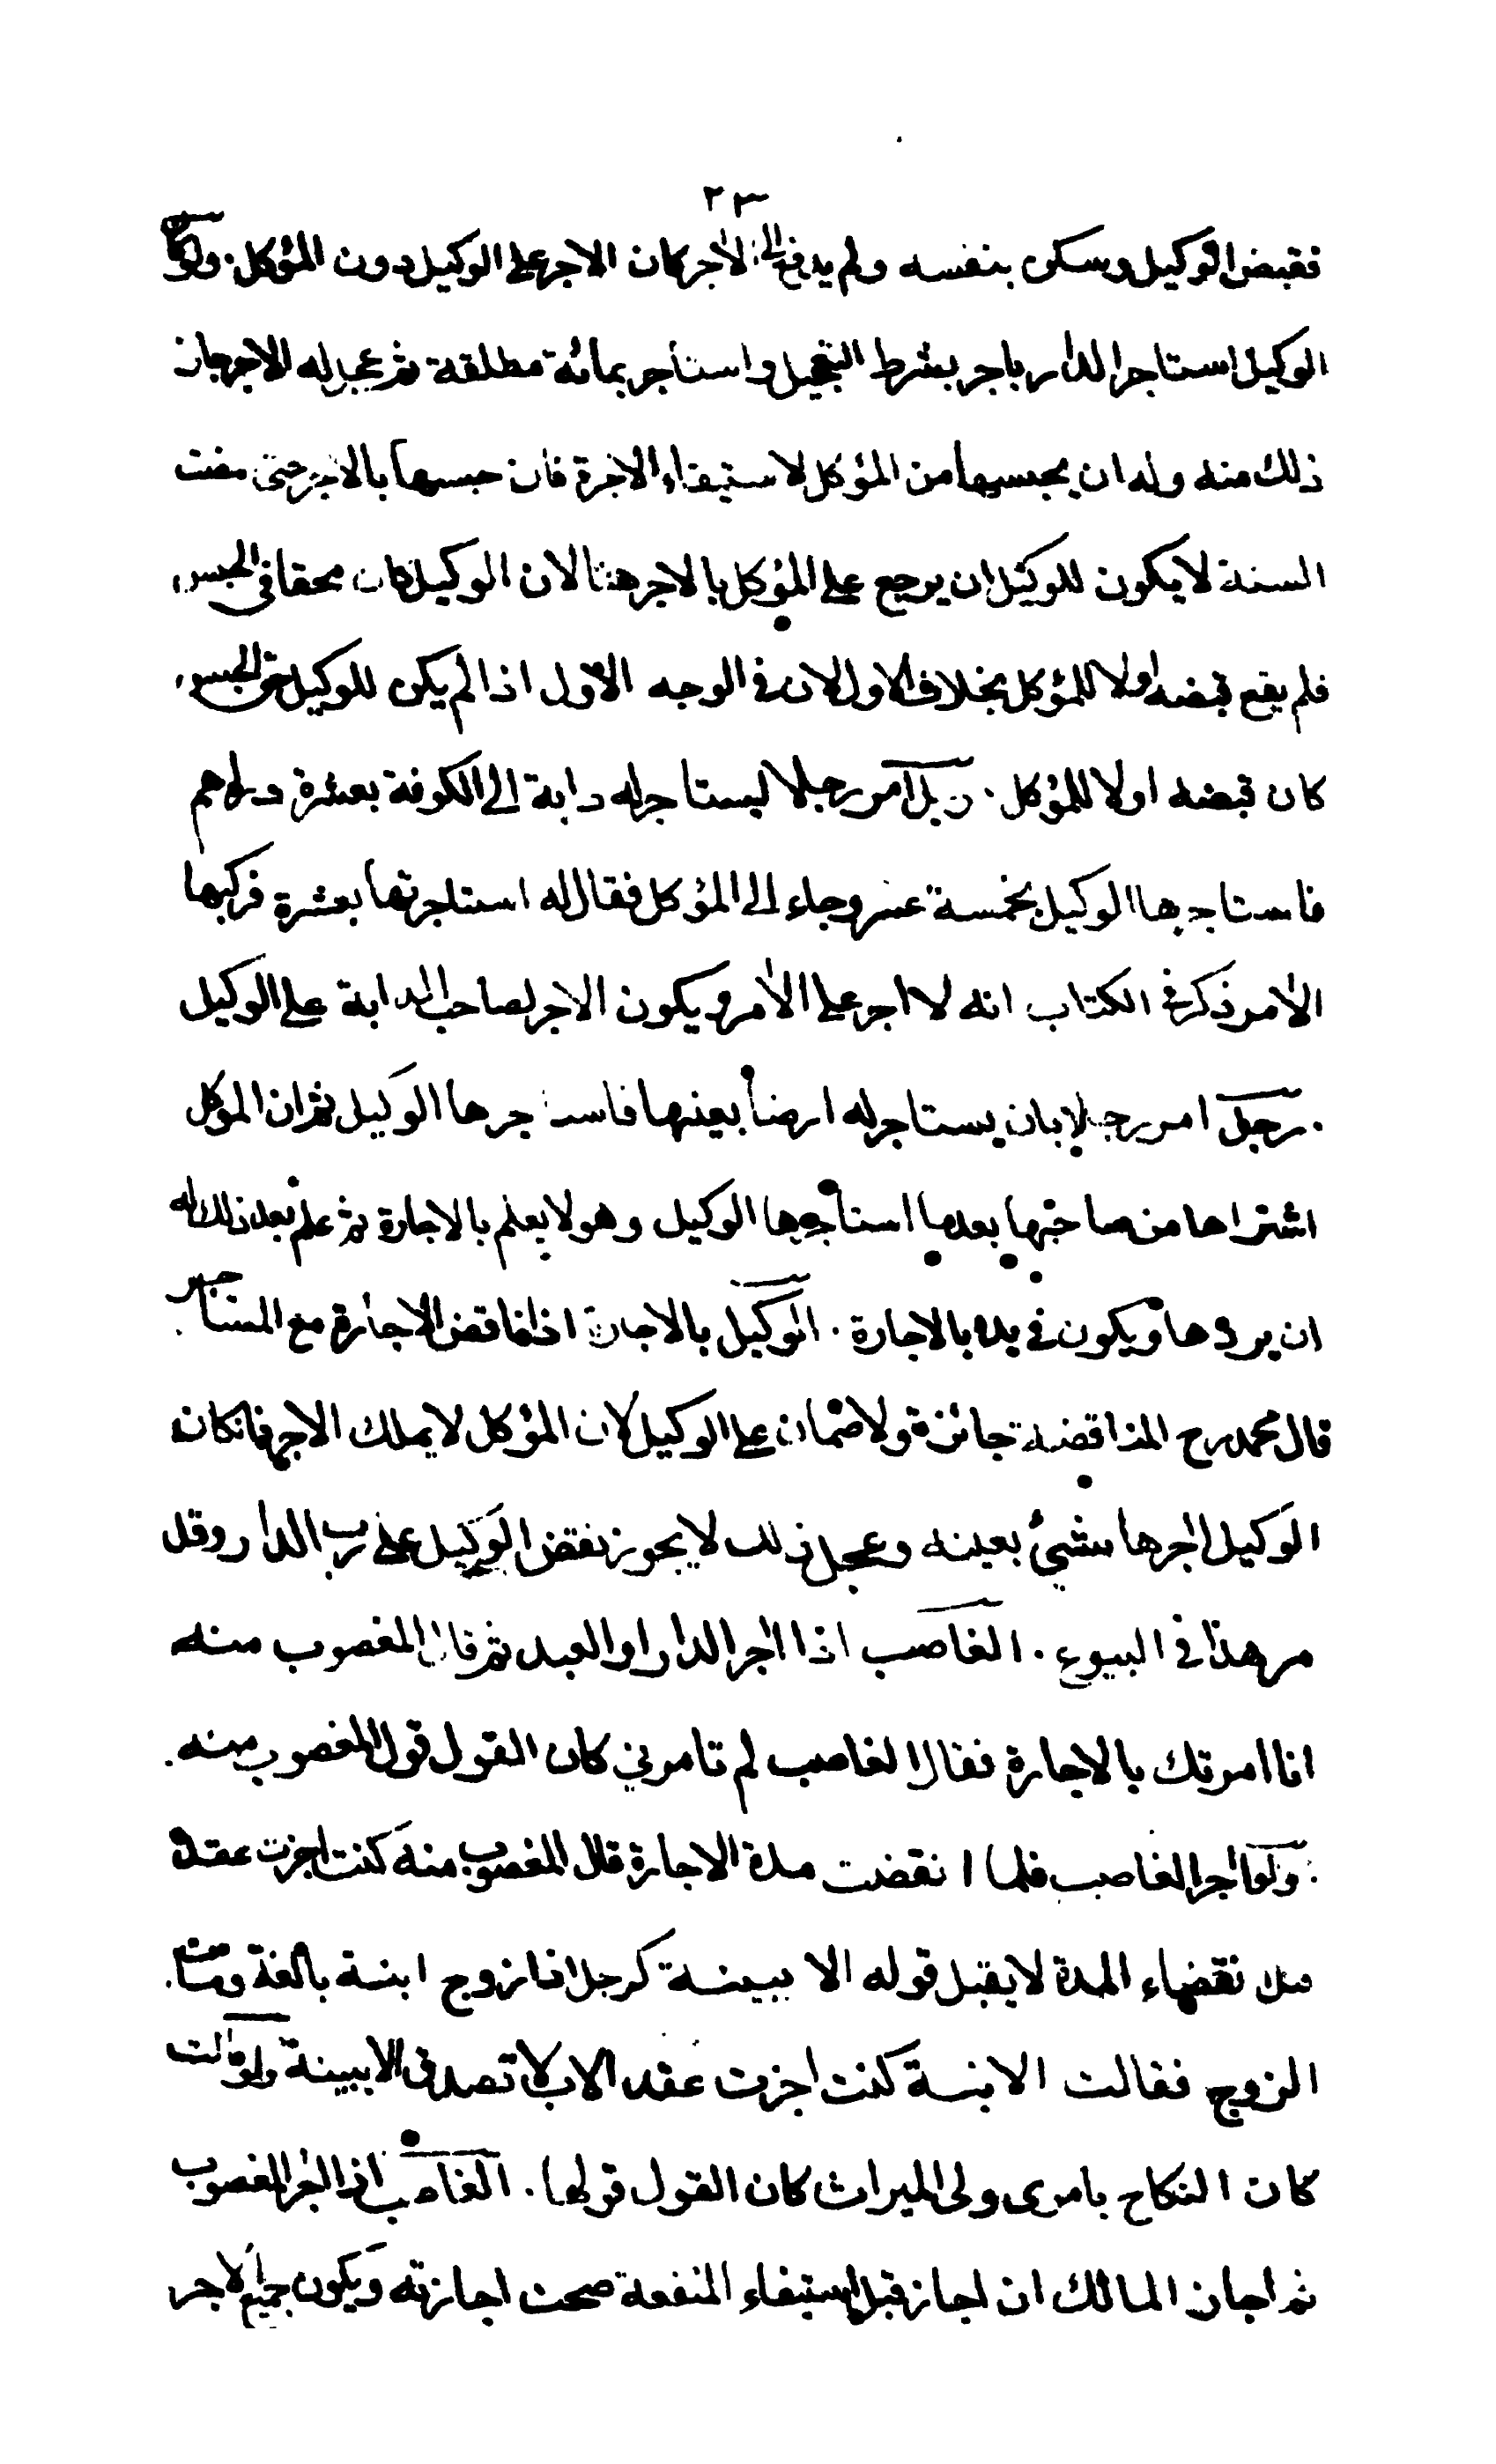 ٢٣
فقبض الوكيل وسكن بنفسه ولم يدفع الى الآجر كان الاجر على الوكيل دون المؤكل . ولو ان
الوكيل استاجر الدار باجر بشرط التعجيل واستأجر بمائة مطلقة ثم عجل له الاجر جاز
ذلك منه وله ان يحبسها من المؤكل لاستيفاء الاجرة فان حبسها بالاجر حتى مضت
السنة لا يكون للوكيل ان يرجع على المؤكل بالاجر هنا لان الوكيل كان محقا في الحبس
فلم يقع قبضه اولا للمؤكل بخلاف الاول لان في الوجه الاول اذا لم يكن للوكيل حق الحبس
كان قبضه اولا للمؤكل . رجل آمر رجلا ليستاجر له دابة الى الكوفة بعشرة دراهم
فاستاجرها الوكيل بخمسة عشر وجاء الى المؤكل فقال له استاجرتها بعشرة فركبها
الآمر ذكر في الكتاب انه لا اجر على الآمر ويكون الاجر لصاحب الدابة على الوكيل
. رجل امر رجلا بان يستاجر له ارضا بعينها فاستاجرها الوكيل ثم ان الموكل
اشتراها من صاحبها بعدما استأجرها الوكيل وهو لا يعلم بالاجارة ثم علم بعد ذلك له
ان يردها ويكون في يده بالاجارة . الوكيل بالاجارة اذا ناقض الاجارة مع المستاجر
قال محمد رح المناقضة جائزة ولا ضمان على الوكيل لان المؤكل لا يملك الاجر فان كان
الوكيل آجرها بشيئ بعينه وعجل ذلك لا يجوز نقض الوكيل على رب الدار وقد
مر هذا في البيوع . الغاصب اذا آجر الدار او العبد ثم قال المغصوب منه
انا امرتك بالاجارة فقال الغاصب لم تامرني كان القول قول المغصوب منه .
. ولو آجر الغاصب فلما انقضت مدة الاجارة قال المغصوب منه كنت اجزت عقده
قبل انقضاء المدة لا يقبل قوله الا ببينة كرجل اذا زوج ابنة بالغة ومات
الزوج فقالت الابنة كنت اجزت عقد الاب لا تصدق الا ببينة ولو قالت
كان النكاح بامرى ولى الميراث كان القول قولها . الغاصب اذا آجر المغصوب
ثم اجاز المالك ان اجاز قبل استيفاء المنفعة صحت اجازته ويكون جميع الاجر